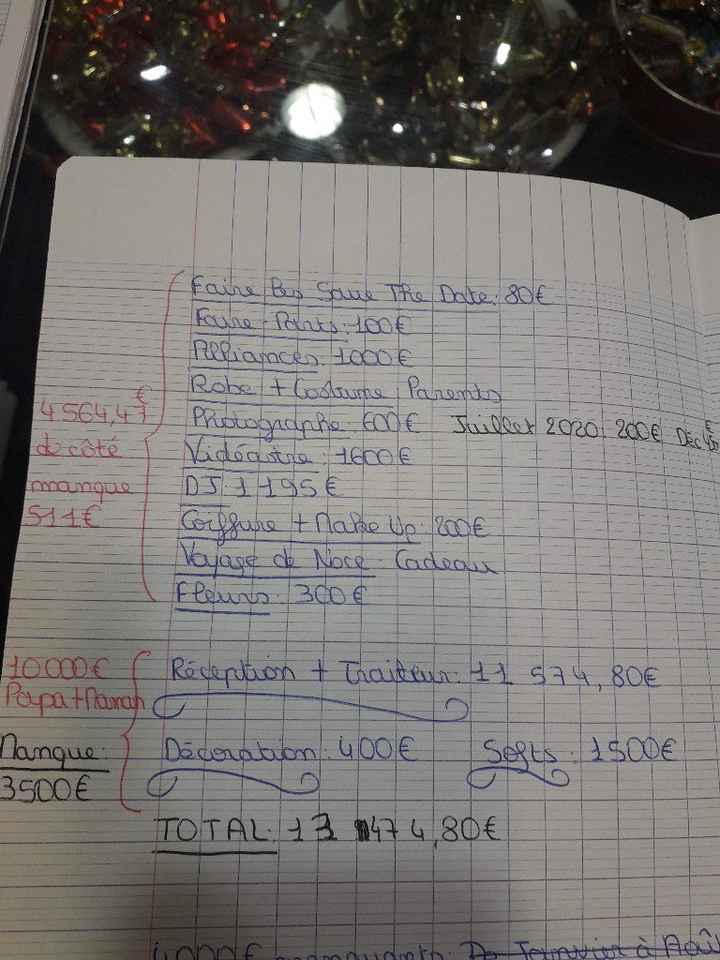 Faire Les Save The Date: 80€
Faire-Parts: 100€
Alliances: 1000€
Robe + Costume Parents
4 564,47€ de côté
Photographe: 600€ Juillet 2020: 200€ Déc
Vidéastre: 1600€
manque
DJ: 1 195€
511€
Coiffure + Make Up: 200€
Voyage de Noce: Cadeau
Fleurs: 300€
10 000€
Réception + Traiteur: 11 574,80€
Papa+Maman
Manque:
Décoration: 400€ Softs: 1500€
3500€
TOTAL: 13 474,80€
4000€ De Janvier à Août